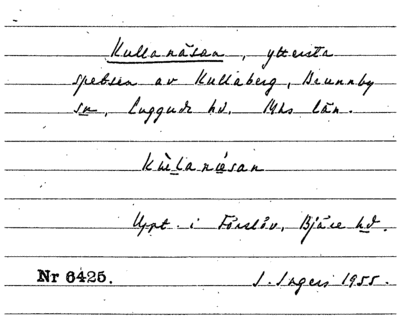 Kullanäsan, yttersta
spetsen av Kullaberg, Brunnby
sn, Luggude hd, Mhs län.
Kùlanäsan
Uppt. i Förslöv, Bjäre hd.
Nr 6425. I. Ingers 1955.